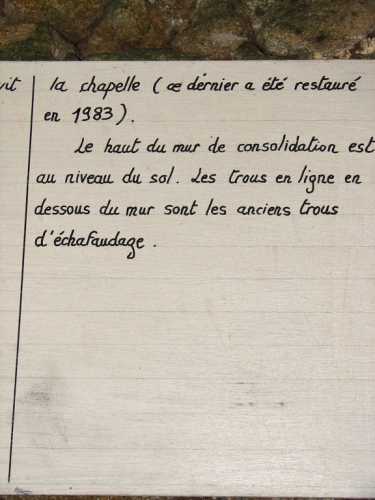 vit
la chapelle (ce dérnier a été restauré
en 1983).
Le haut du mur de consolidation est
au niveau du sol. Les trous en ligne en
dessous du mur sont les anciens trous
d'échafaudage.